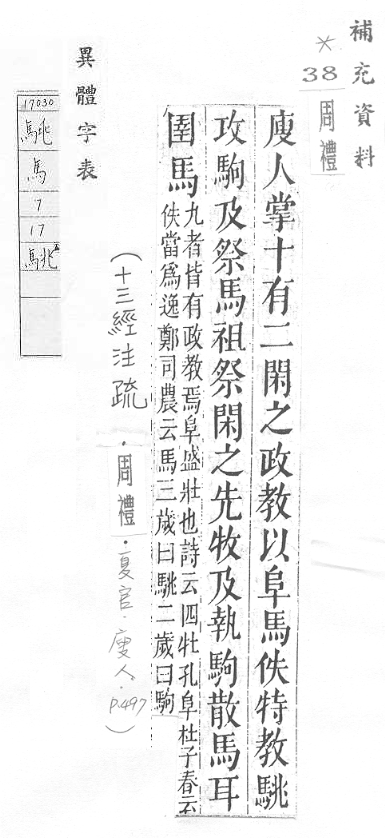 補充資料
*
38
周禮
廋人掌十有二閑之政教以阜馬佚特教駣
攻駒及祭馬祖祭閑之先牧及執駒散馬耳
圉馬
九者皆有政教焉阜盛壯也詩云四牡孔阜杜子春云
佚當為逸鄭司農云馬三歲曰駣二歲曰駒
(十三經注疏·周禮·夏官·廋人·p.497)
異體字表
17030
駣
馬
7
17